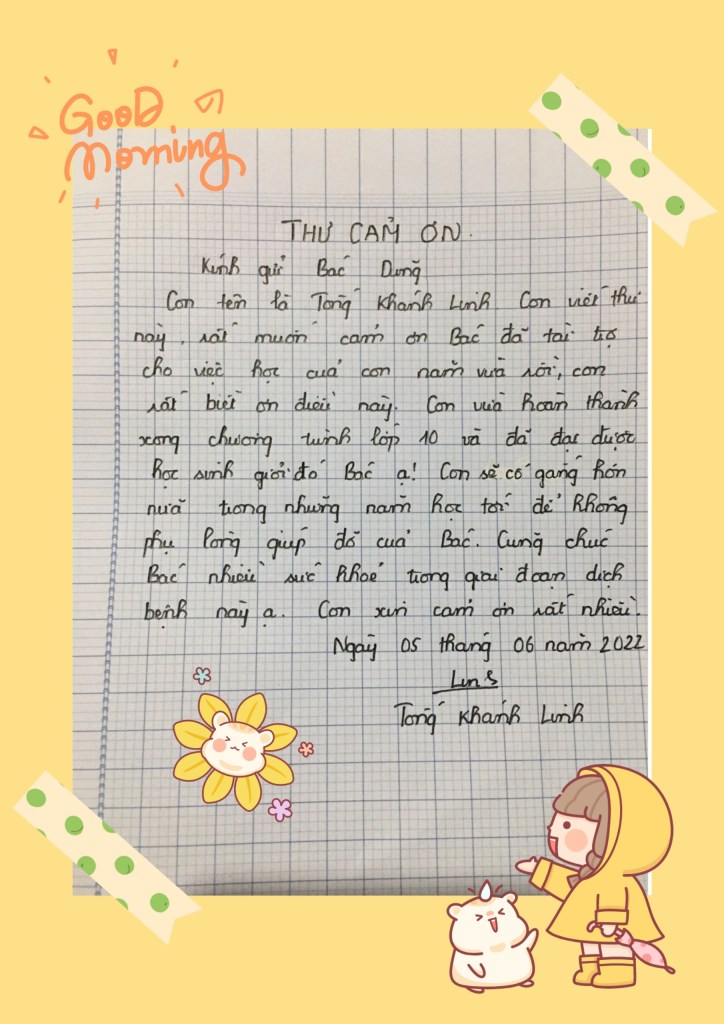 GOOD
Morning
THƯ CẢM ƠN.
Kính gửi Bác Dung
Con tên là Tống Khánh Linh. Con viết thư
này, rất muốn cảm ơn Bác đã tài trợ
cho việc học của con năm vừa rồi, con
rất biết ơn điều này. Con vừa hoàn thành
xong chương trình lớp 10 và đã đạt được
học sinh giỏi đó Bác ạ! Con sẽ cố gắng hơn
nữa trong những năm học tới để không
phụ lòng giúp đỡ của Bác. Cũng chúc
Bác nhiều sức khoẻ trong giai đoạn dịch
bệnh này ạ. Con xin cảm ơn rất nhiều.
Ngày 05 tháng 06 năm 2022
Tống Khánh Linh